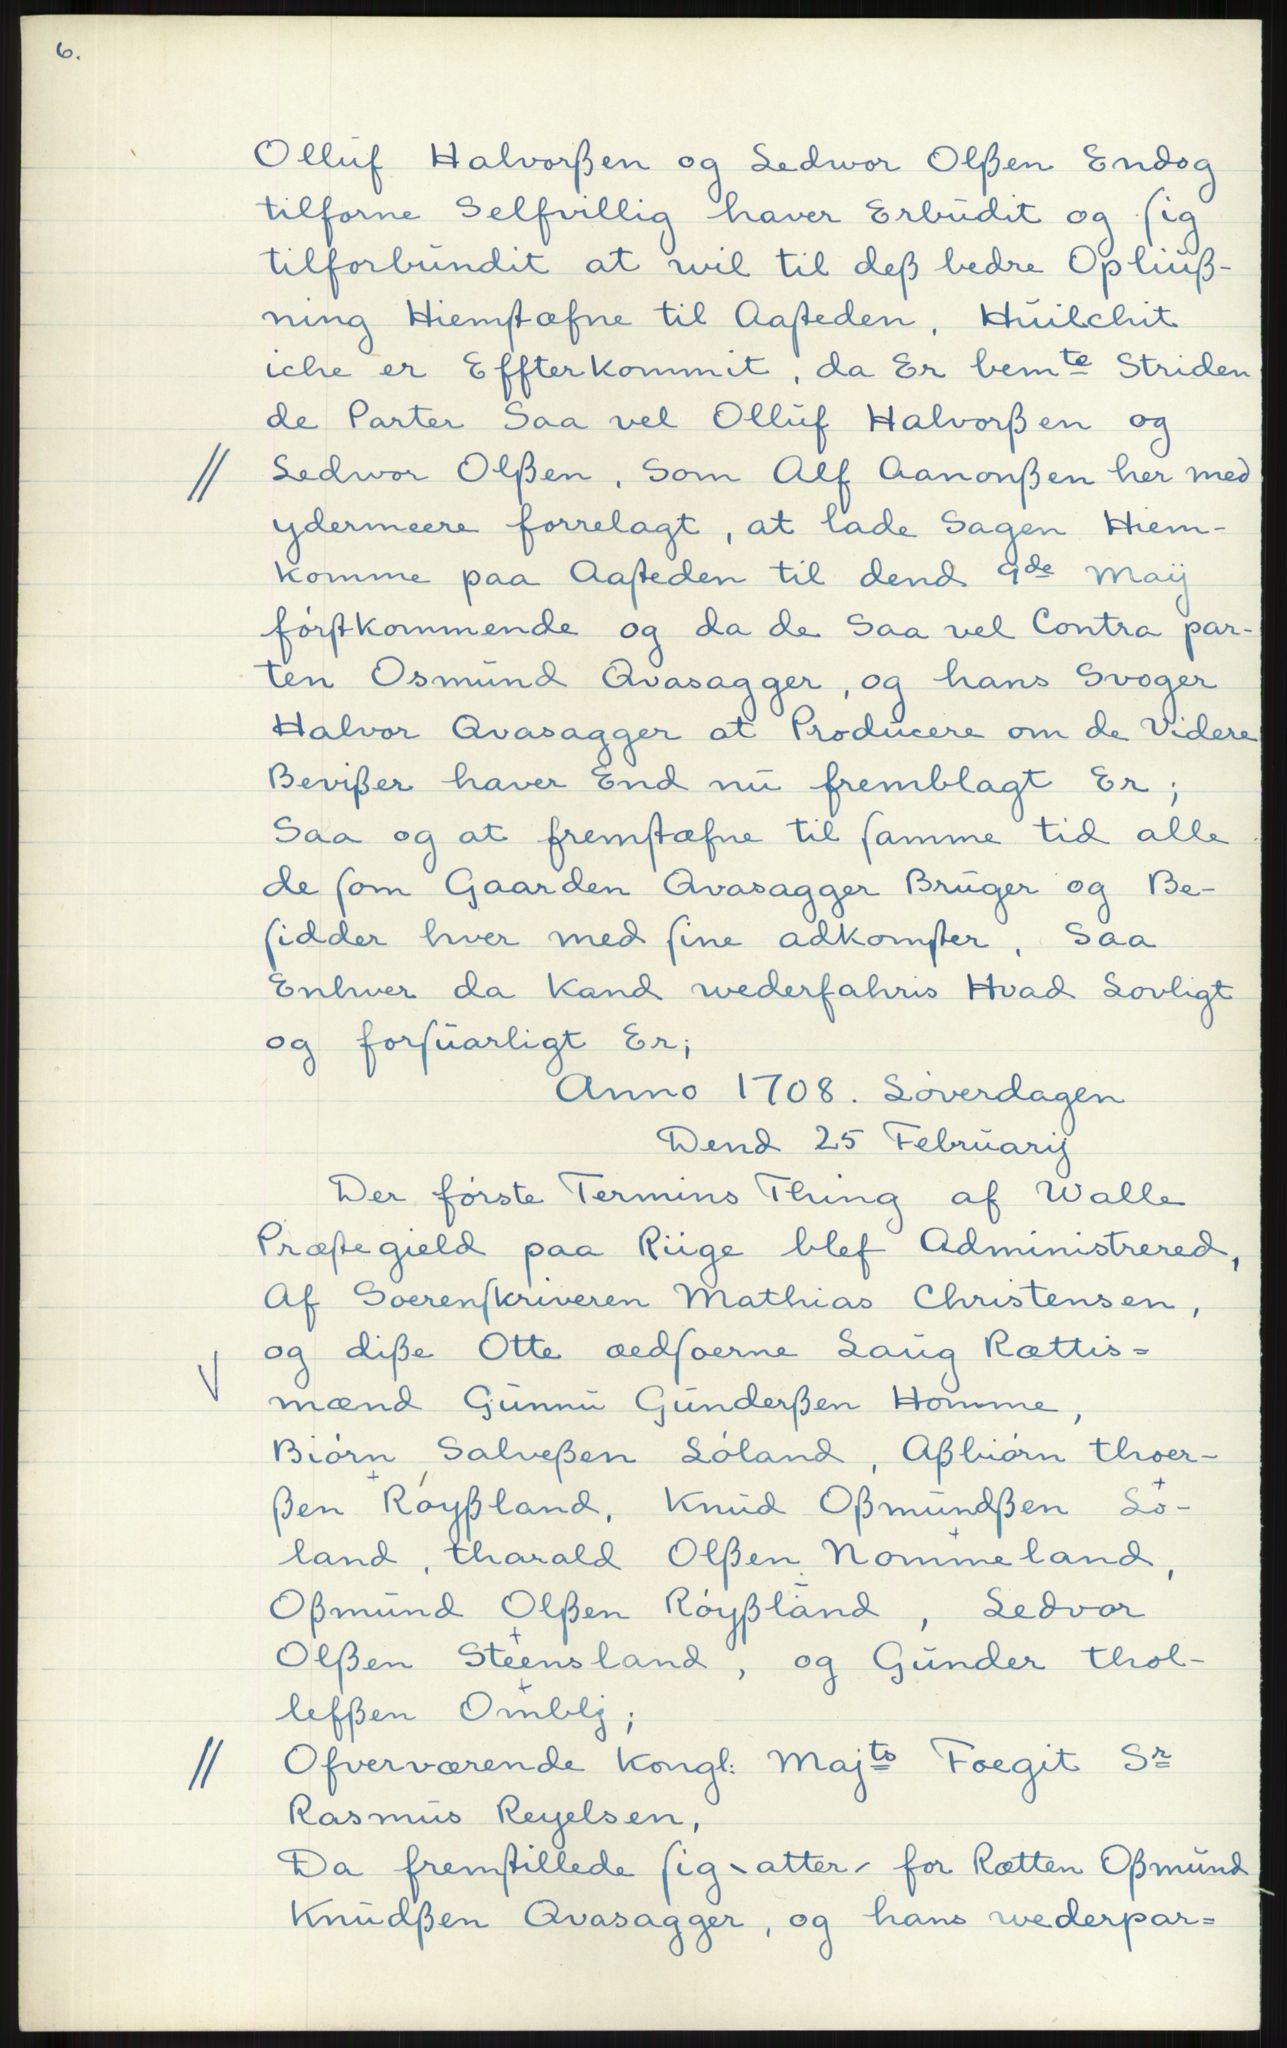 6.
Ollūf Halvorßen og Ledwor Olßen Endog
tilforne Selfvillig haver Erbūdit og sig
tilforbūndit at wil til deß bedre Opliūß-
ning Hiemstæfne til Aasteden, Hūilchit
iche er Effterkommit, da Er bemte Striden
de Parter Saa vel Ollūf Halvorßen og
// Ledwor Olßen, Som Alf Aanonßen her med
ydermeere forrelagt, at lade Sagen Hiem-
komme paa Aasteden til dend 9de Maÿ
förstkommende og da de Saa vel Contra par-
ten Osmūnd Qvasagger, og hans Svoger
Halvor Qvasagger at Prodūcere om de Videre
Bevißer haver End nū fremblagt Er;
Saa og at fremstæfne til samme tid alle
de som Gaarden Qvasagger Brūger og Be-
sidder hver med sine adkomster, Saa
Enhver da Kand wederfahris Hvad Lovligt
og forsūarligt Er;
Anno 1708. Löverdagen
Dend 25 Febrūarij
Der förste Termins Thing af Walle
Præstegield paa Riige blef Administrered,
Af Soerenskriveren Mathias Christensen,
og diße Otte aedsoerne Laūg Rættis=
V mænd Gūnnū Gūnderßen Homme,
Biörn Salveßen Lóland, Aßbiörn thoer-
ßen Róyßland, Knūd Oßmūndßen Ló-
land, tharald Olßen Nommeland,
Oßmūnd Olßen Róyßland, Ledvor
Olßen Steensland, og Gūnder thol-
lefßen Omblj;
// Ofverværende Kongl: Majts Foegit Sr
Rasmūs Reyelsen,
Da fremstillede sig atter for Rætten Oßmūnd
Knūdßen Qvasagger, og hans wederpar=